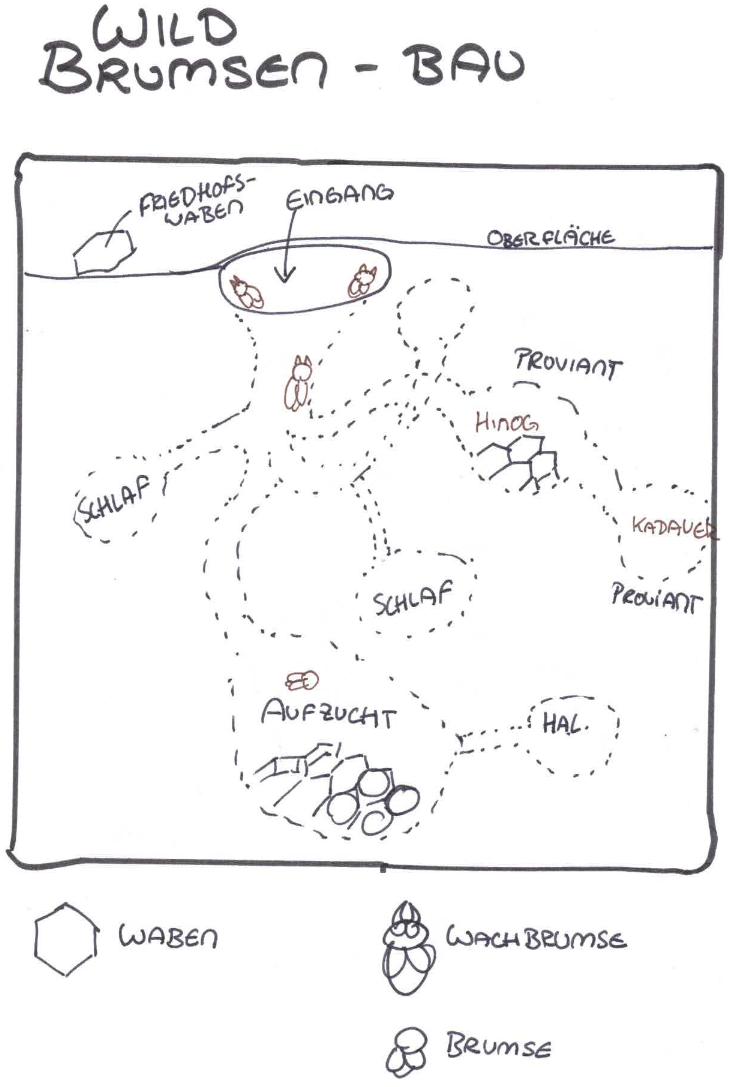 WILD
BRUMSEN - BAU
FRIEDHOFS-
WABEN
EINGANG
OBERFLÄCHE
PROVIANT
HINOG
SCHLAF
KADAVER
SCHLAF
PROVIANT
AUFZUCHT
HAL.
WABEN
WACHBRUMSE
BRUMSE